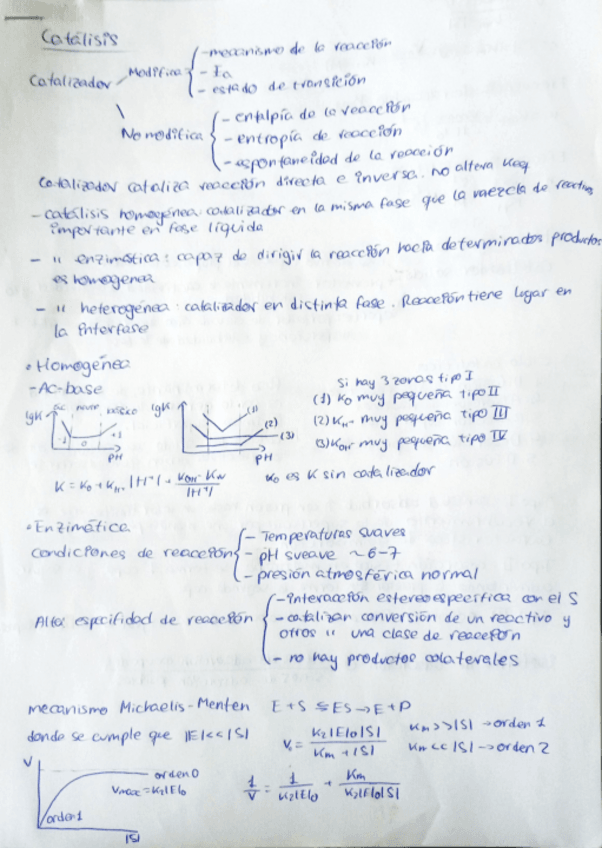 Catálisis
Catalizador
Modifica
- mecanismo de la reacción
- Ea
- estado de transición
No modifica
- entalpía de la reacción
- entropía de reacción
- espontaneidad de la reacción
Catalizador cataliza reacción directa e inversa. no altera Keq
- catálisis homogénea: catalizador en la misma fase que la mezcla de reactivos
importante en fase líquida
- " enzimática: capaz de dirigir la reacción hacia determinados productos
es homogenea
- " heterogénea: catalizador en distinta fase. Reacción tiene lugar en
la interfase
• Homogénea
- Ac-base
lgK
ác neutro básico
-1 0 +1
pH
lgK
(1)
(2)
(3)
pH
Si hay 3 zonas tipo I
(1) K0 muy pequeña tipo II
(2) KH+ muy pequeña tipo III
(3) KOH- muy pequeña tipo IV
K = K0 + KH+ |H+| + KOH- Kw / |H+|
K0 es K sin catalizador
• Enzimática
condiciones de reacción
- Temperaturas suaves
- pH sueave ~6-7
- presión atmosférica normal
Alta especifidad de reacción
- interacción estereoespecífica con el S
- catalizan conversión de un reactivo y
otros " una clase de reacción
- no hay productos colaterales
mecanismo Michaelis-Menten E + S ⇆ ES → E + P
donde se cumple que |E| << |S|
V = K2|E|0|S| / Km + |S|
Km >> |S| → orden 1
Km << |S| → orden 2
V
orden 0
Vmax = K2|E|0
orden 1
|S|
1/V = 1/K2|E|0 + Km/K2|E|0|S|